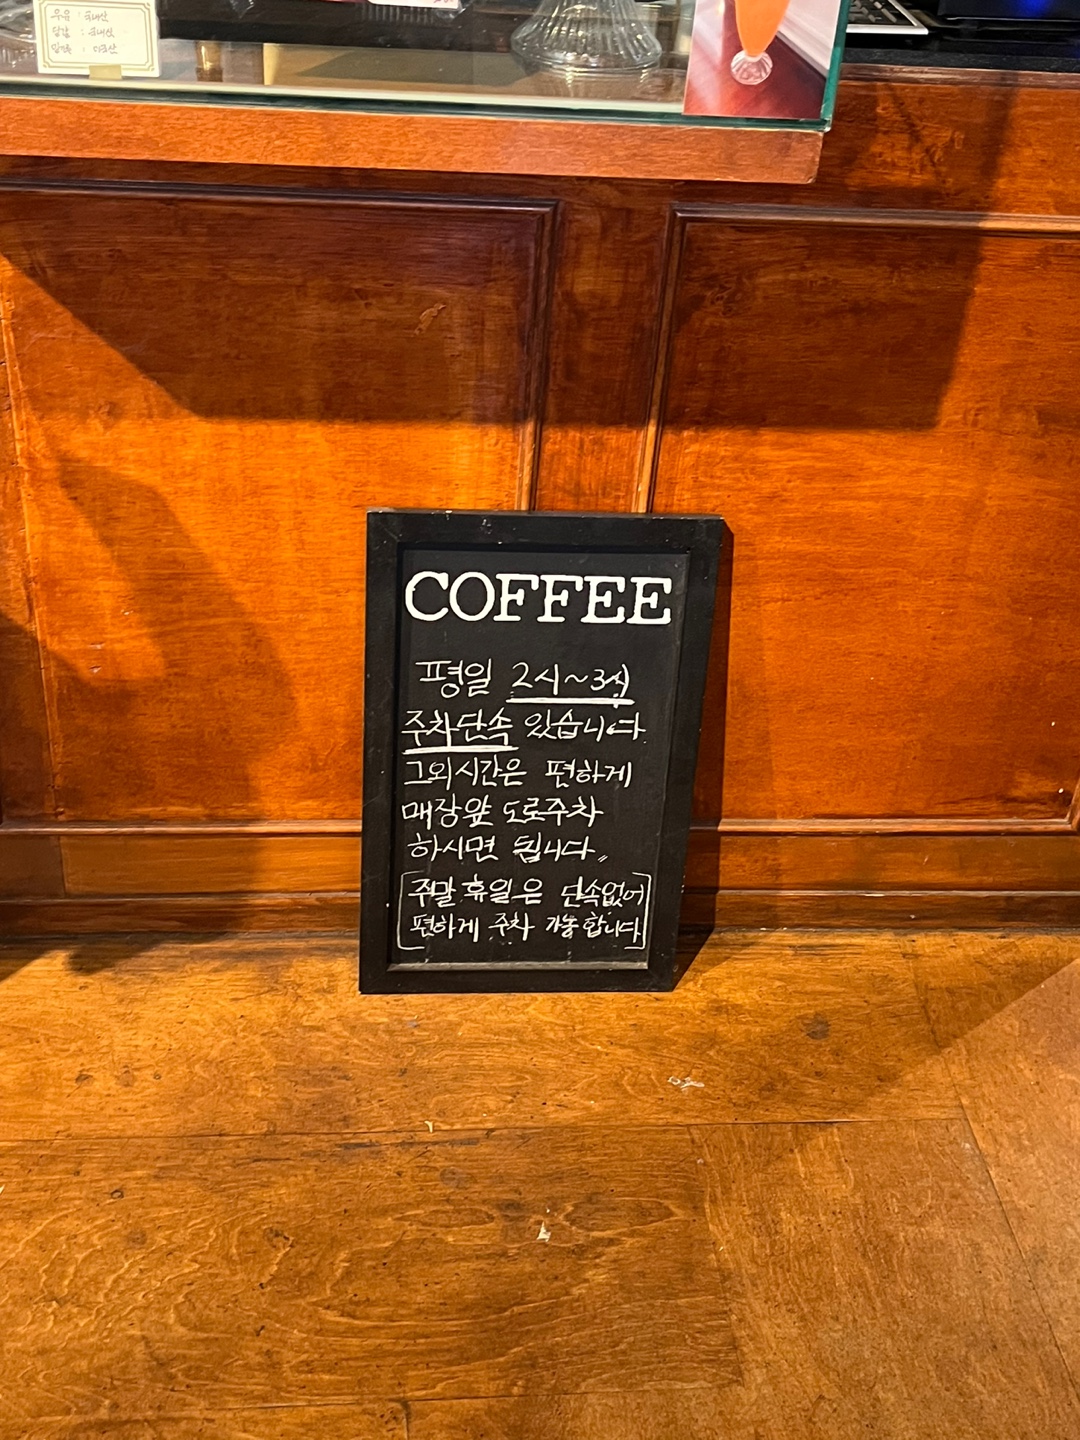 우유 : 국내산
달걀 : 국내산
COFFEE
평일 2시~3시
주차단속 있습니다
그외시간은 편하게
매장앞 도로주차
하시면 됩니다〃
[주말 휴일은 단속없어
편하게 주차 가능합니다]